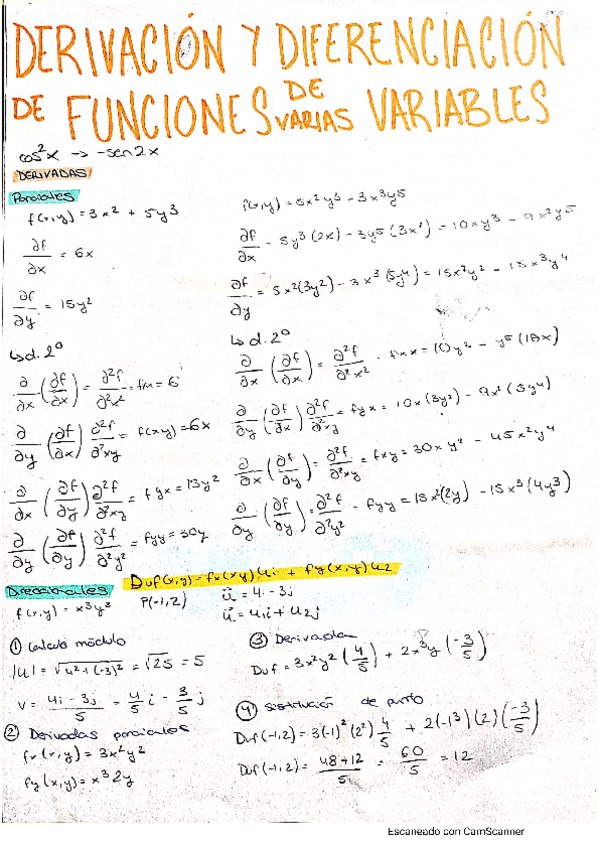 DERIVACIÓN Y DIFERENCIACIÓN
DE FUNCIONES DE VARIAS VARIABLES
cos²x → -sen2x
DERIVADAS
Parciales
f(x,y) = 3x² + 5y³
∂f/∂x = 6x
∂f/∂y = 15y²
↳ d. 2º
∂/∂x (∂f/∂x) = ∂²f/∂²x² = fxx = 6
∂/∂y (∂f/∂x) ∂²f/∂²xy = f(xy) = 6x
∂/∂x (∂f/∂y) ∂²f/∂²xy = fyx = 15y²
∂/∂y (∂f/∂y) ∂²f/∂²y² = fyy = 30y
f(x,y) = 5x²y³ - 3x³y5
∂f/∂x = 5y³(2x) - 3y5(3x²) = 10xy³ - 9x²y5
∂f/∂y = 5x²(3y²) - 3x³(5y4) = 15x²y² - 15x³y4
↳ d. 2º
∂/∂x (∂f/∂x) = ∂²f/∂²x² = fxx = 10y² - y5(18x)
∂/∂y (∂f/∂x) ∂²f/∂²xy = fyx = 10x(3y²) - 9x²(5y4)
∂/∂x (∂f/∂y) = ∂²f/∂²xy = fxy = 30xy² - 45x²y4
∂/∂y (∂f/∂y) = ∂²f/∂²y² = fyy = 15x²(2y) - 15x³(4y3)
Direccionales
Duf(x,y) = fx(xy)u1 + fy(x,y)u2
f(x,y) = x³y²
P(-1,2)
ū = 4i - 3j
ū = u1i + u2j
① Calculo módulo
|u| = √4²+(-3)² = √25 = 5
v = 4i - 3j/5 = 4/5 i - 3/5 j
② Derivadas parciales
fx(x,y) = 3x²y²
fy(x,y) = x³2y
③ Derivadas
Duf = 3x²y² (4/5) + 2x³y (-3/5)
④ Sistitución de punto
Duf(-1,2) = 3(-1)²(2²) 4/5 + 2(-1³)(2)(-3/5)
Duf(-1,2) = 48+12/5 = 60/5 = 12
Escaneado con CamScanner